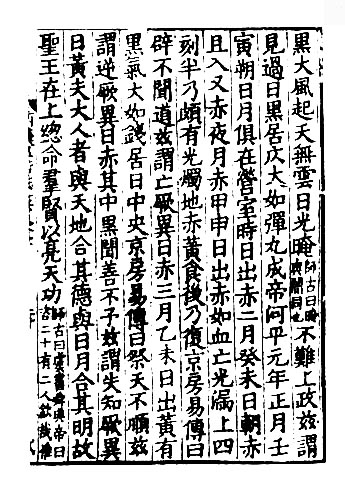 黑大風起天無雲日光晻師古曰晻與闇同也不難上政茲謂
見過日黑居仄大如彈丸成帝河平元年正月壬
寅朔日月俱在營室時日出赤二月癸未日朝赤
且入又赤夜月赤甲申日出赤如血亡光漏上四
刻半乃頗有光燭地赤黃食後乃復京房易傳曰
辟不聞道茲謂亡厥異日赤三月乙未日出黃有
黑氣大如錢居日中央京房易傳曰祭天不順茲
謂逆厥異日赤其中黑聞善不予茲謂失知厥異
日黃夫大人者與天地合其德與日月合其明故
聖王在上緫命羣賢以亮天功師古曰虞書舜典帝曰咨二十有二人欽哉惟